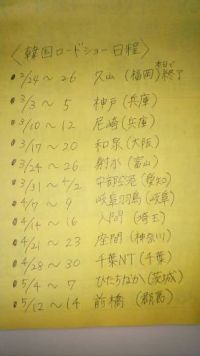 〈韓国ロードショー日程〉
本日で
2/24〜26 久山(福岡)終了
3/3〜5 神戸(兵庫)
3/10〜12 尼崎(兵庫)
3/17〜20 和泉(大阪)
3/24〜26 射水(富山)
3/31〜4/2 中部空港(愛知)
4/7〜9 岐阜羽島(岐阜)
4/14〜16 入間(埼玉)
4/21〜23 座間(神奈川)
4/28〜30 千葉NT(千葉)
5/4〜7 ひたちなか(茨城)
5/12〜14 前橋(群馬)